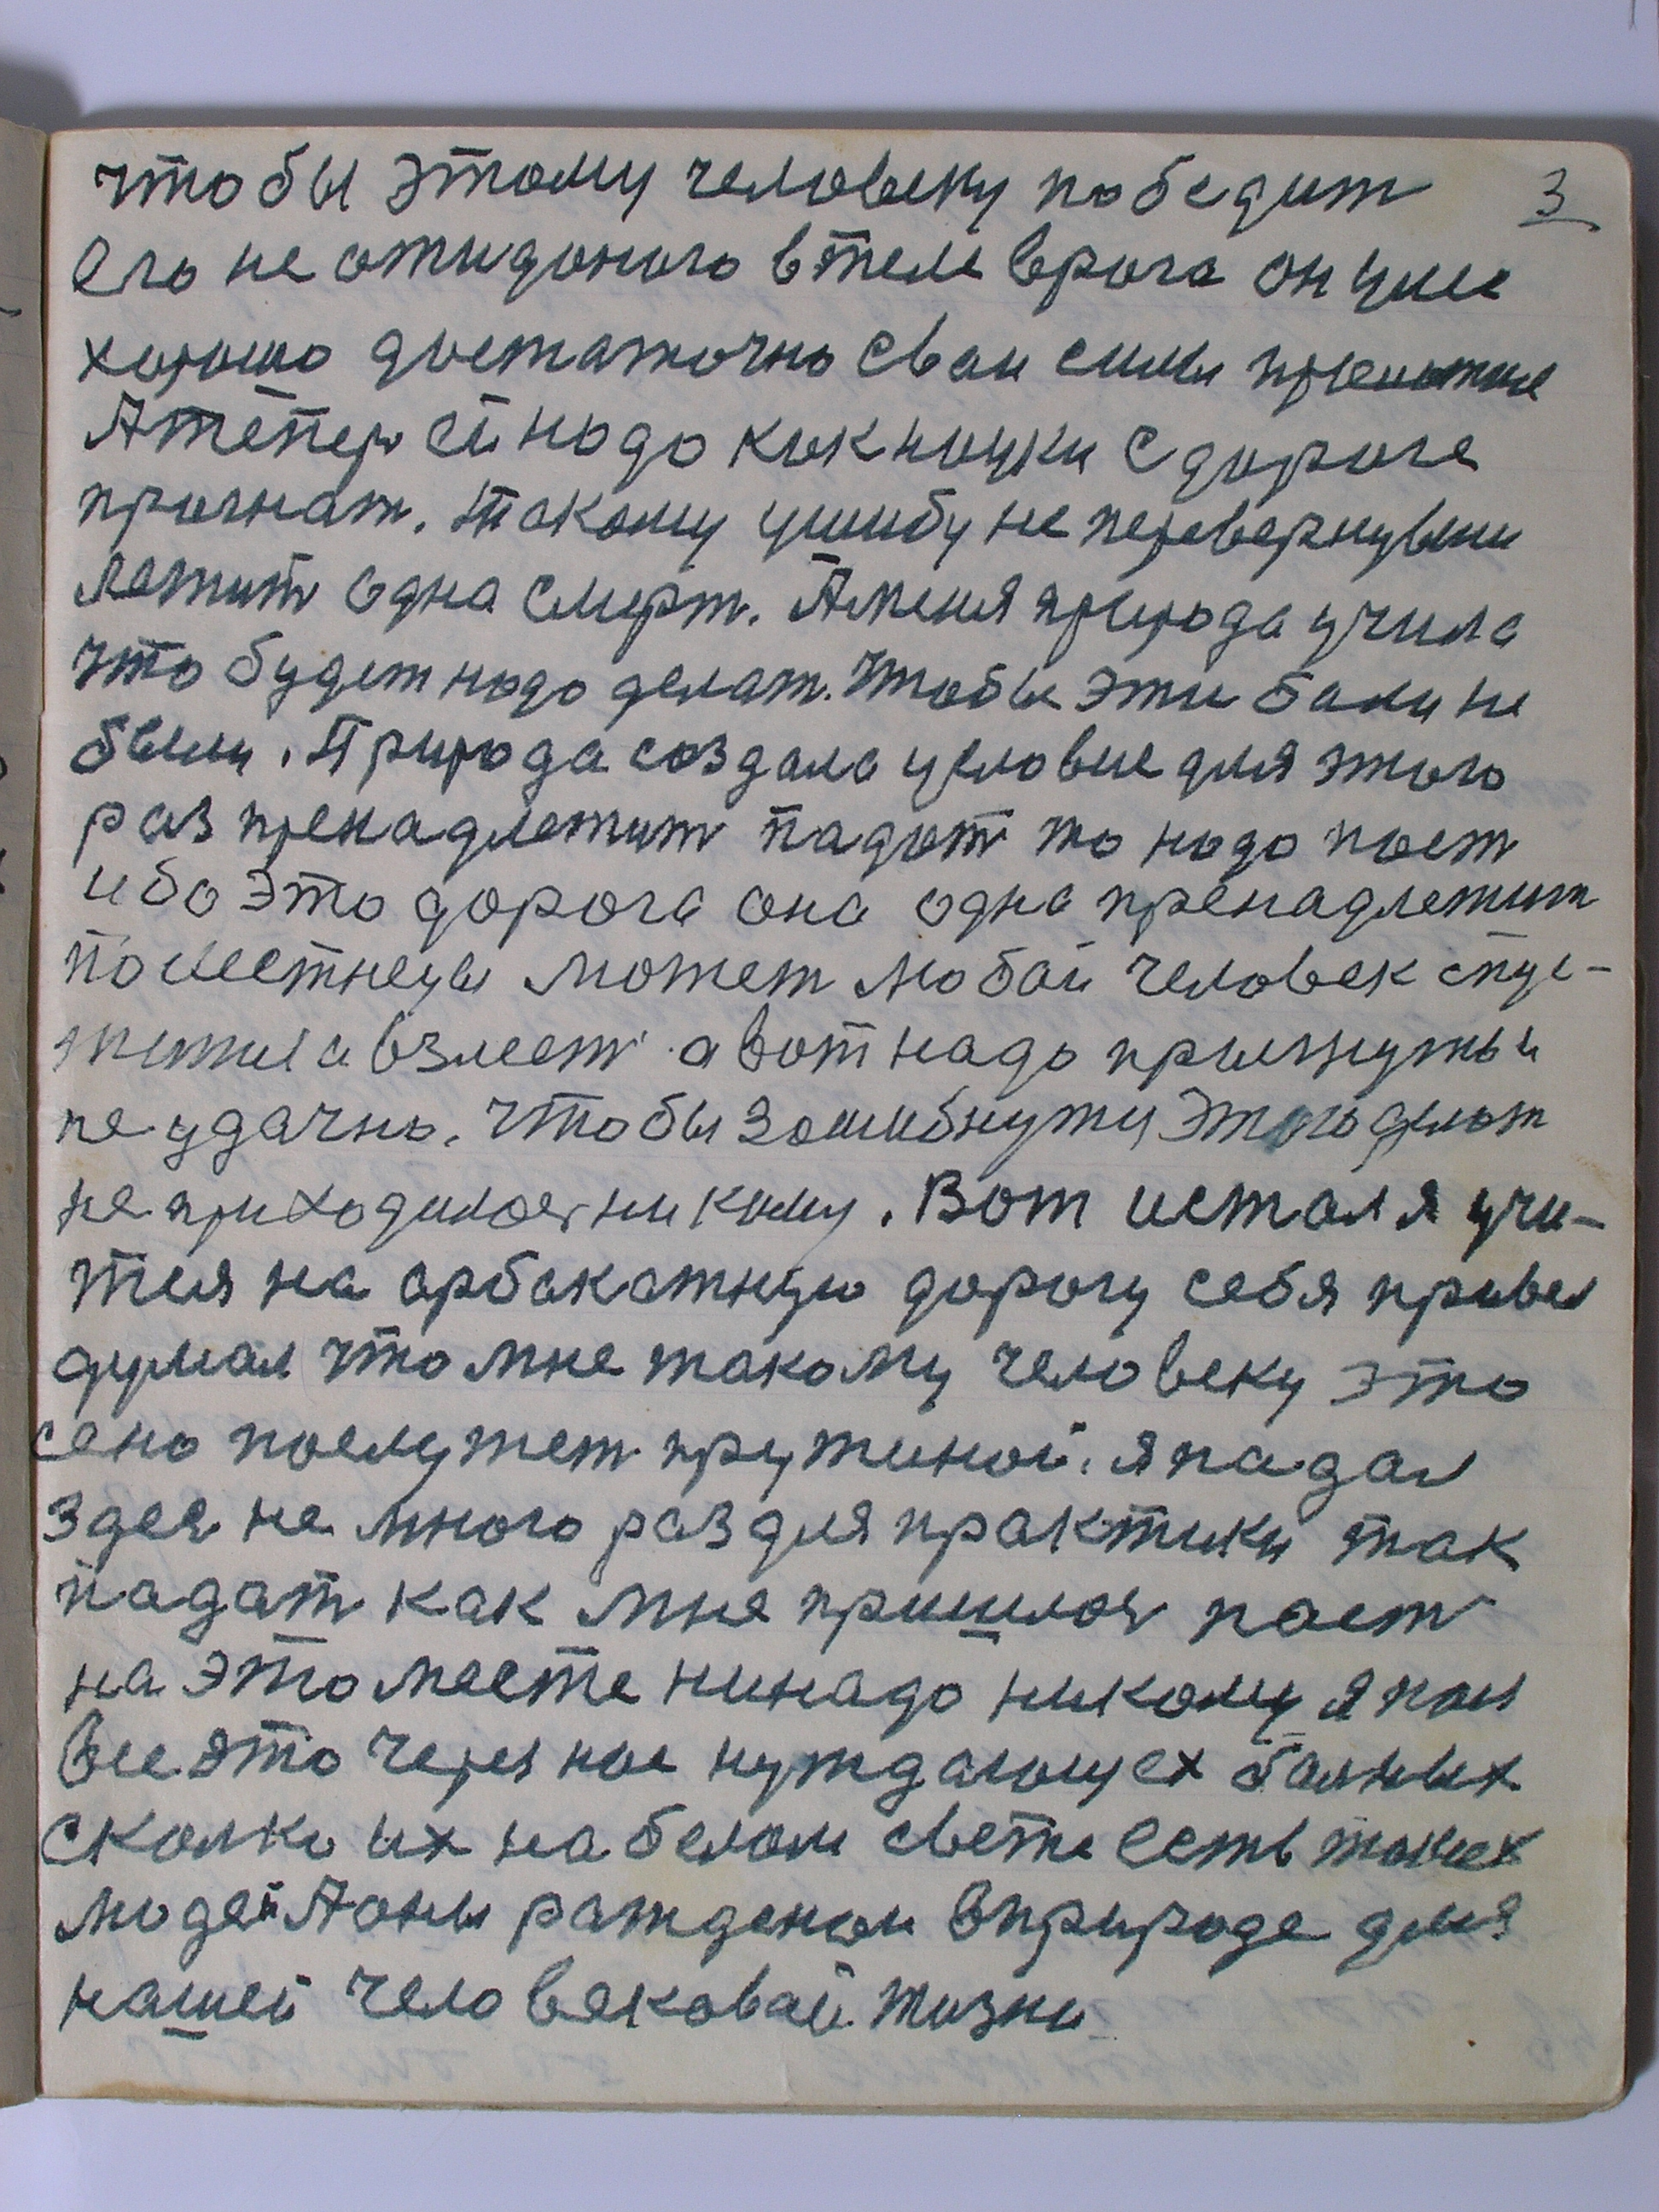 чтобы этому человеку победит 3
его не ожиданого втеле врага он уже
хорошо достаточно сваи силы
Атепер ей надо как
прогнат. Такому ушибу не перевернувши
лежит одна смерт. Аменя природа учила
что будет надо делат. Чтобы эти бали не
были. Природа создала условие для этого
раз пренадлежит падат то надо паст
ибо это дорога она одна пренадлежит
полестнецы может любой человек спус-
а взлест а вот надо прыгнуть и
не удачно. Чтобы зашибнутця этого делат
не приходилось никому. Вот и стал я учи-
тця на арбакатную дорогу себя привел
думал что мне такому человеку это
сено послужет пружиной. я падал
здеся не много раз для практики так
падат как мне пришлось паст
на это месте нинадо никому я пал
все это через нас нуждающех балных
сколко их на белом свете есть такех
людей Аоны ражденои вприроде для
нашей человековай жизни